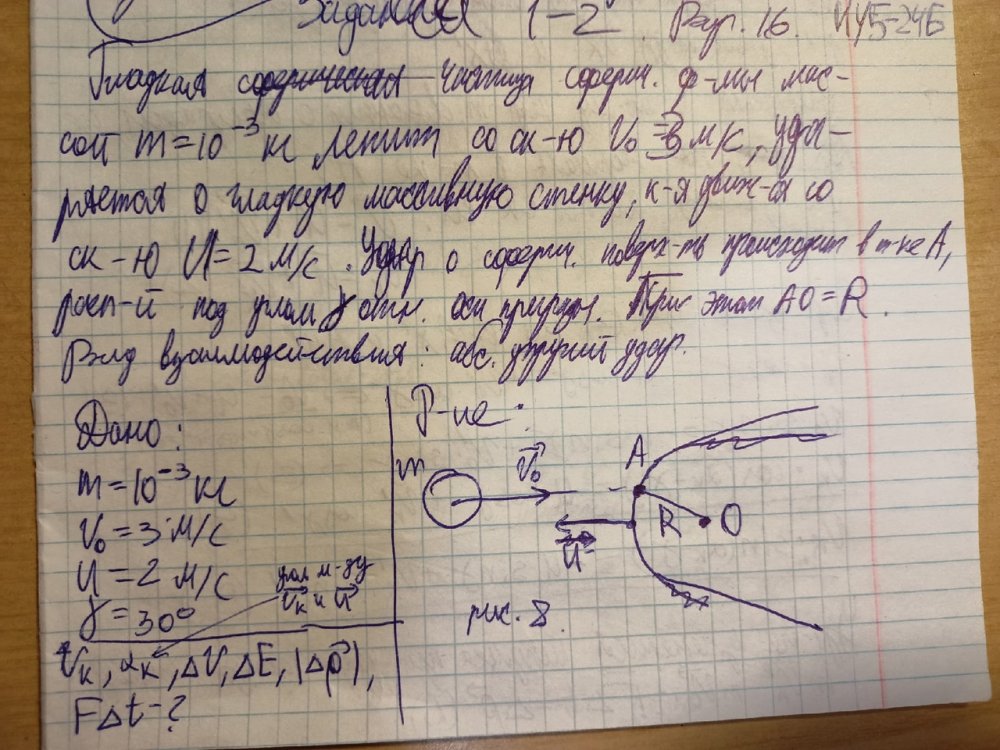 Задания 1-2. Вар. 16. ИУ5-24Б
Гладкая сферическая частица сферич. ф-мы мас-
сой m=10⁻³ кг летит со ск-ю V₀=3 м/с, уда-
ряется о гладкую массивную стенку, к-я движ-ся со
ск-ю U=2 м/с. Удар о сферич. поверх-ть происходит в т-ке A,
расп-й под углом γ отн. оси природн. При этом AO=R.
Вид взаимодействия: абс. упругий удар.
Дано:
m=10⁻³ кг
V₀=3 м/с
U=2 м/с
γ=30°
угол м-ду
V⃗ₖ и U⃗
Vₖ, αₖ, ΔV, ΔE, |Δp⃗|,
FΔt-?
Р-ие:
m
V⃗₀
A
R
O
U⃗
рис. 8.